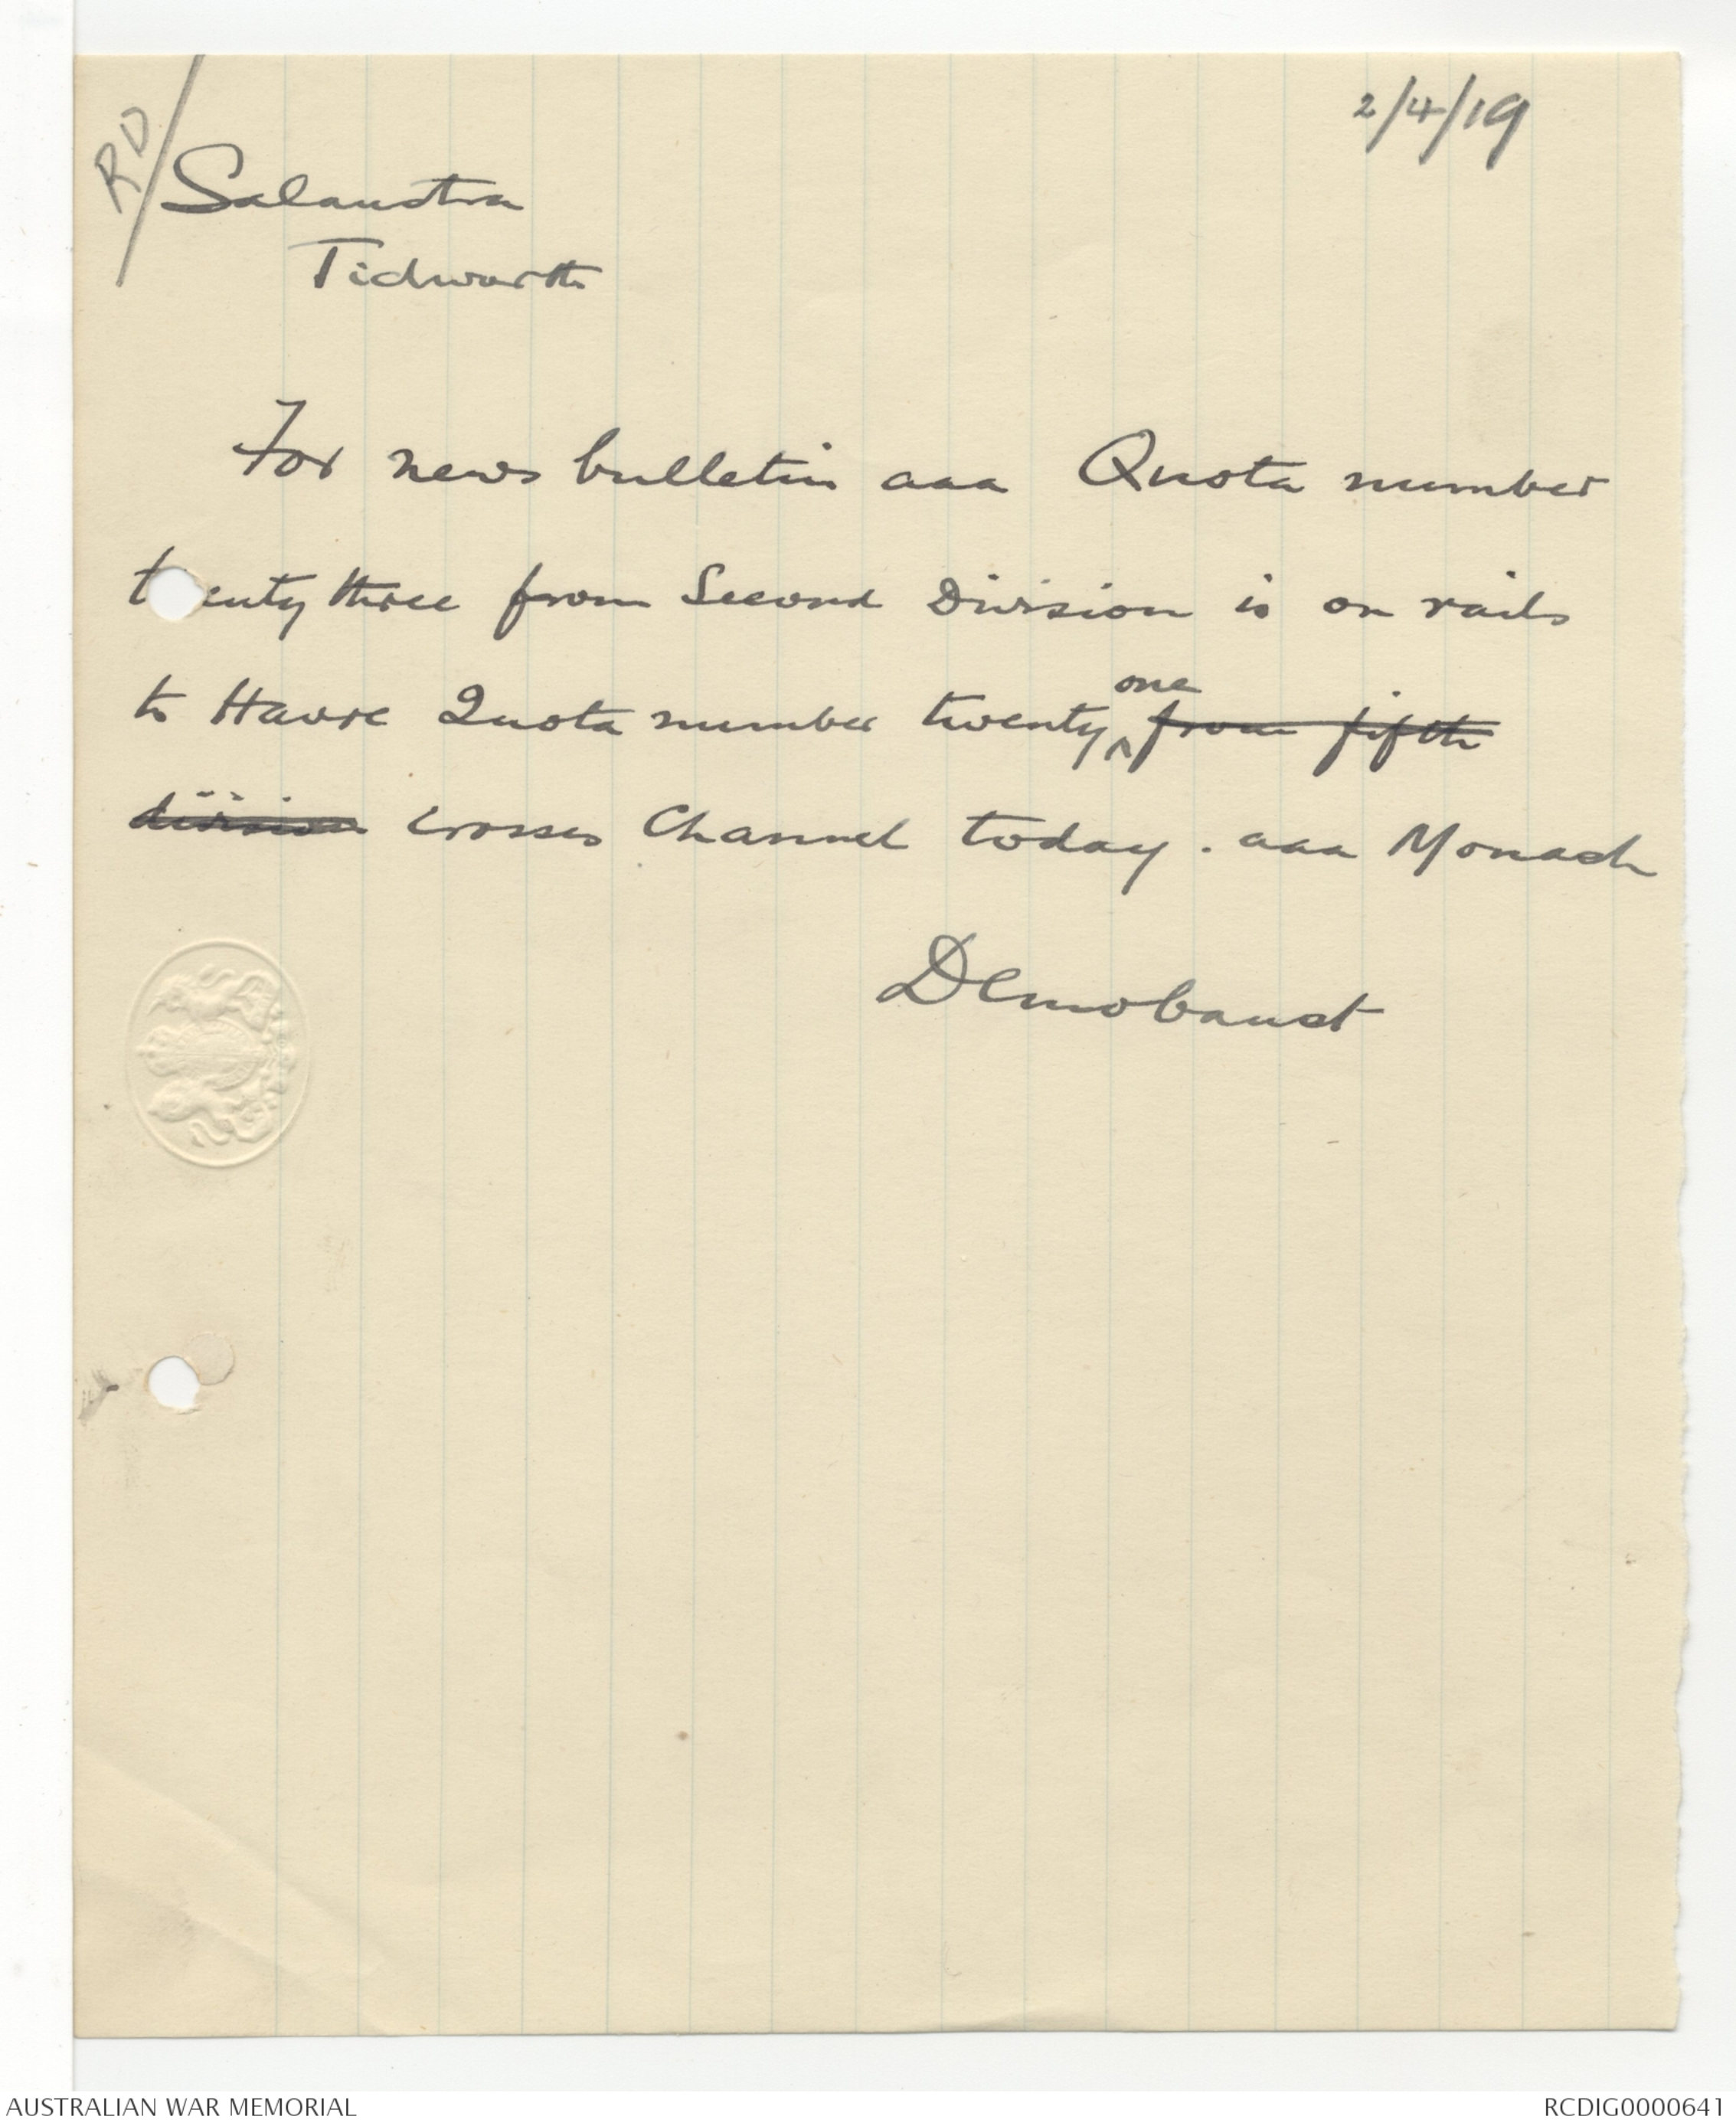 2/4/19
RD
Salaustra
Tidworth
For news bulletin aaa Quota number
twenty three from Second Division is on rails
to Havre Quota number twenty one from fifth
division crosses Channel today. aaa Monash
Demobaust
AUSTRALIAN WAR MEMORIAL
RCDIG0000641